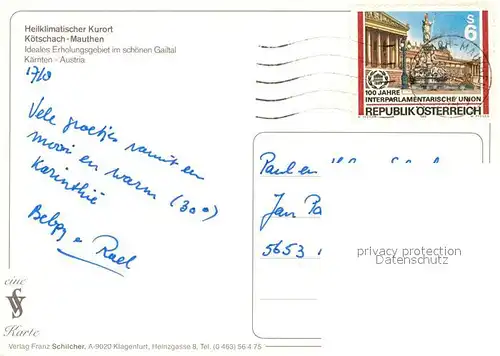 Heilklimatischer Kurort
Kötschach-Mauthen
Ideales Erholungsgebiet im schönen Gailtal
Kärnten - Austria
17/8
Vele groetjes vanuit een
mooi en warm (30°)
Karinthië
S 6
100 JAHRE
INTERPARLAMENTARISCHE UNION
REPUBLIK ÖSTERREICH
Paul en
Jan
5653
privacy protection
Datenschutz
eine
Karte
Verlag Franz Schilcher, A-9020 Klagenfurt, Heinzgasse 8, Tel. (0 463) 56 4 75